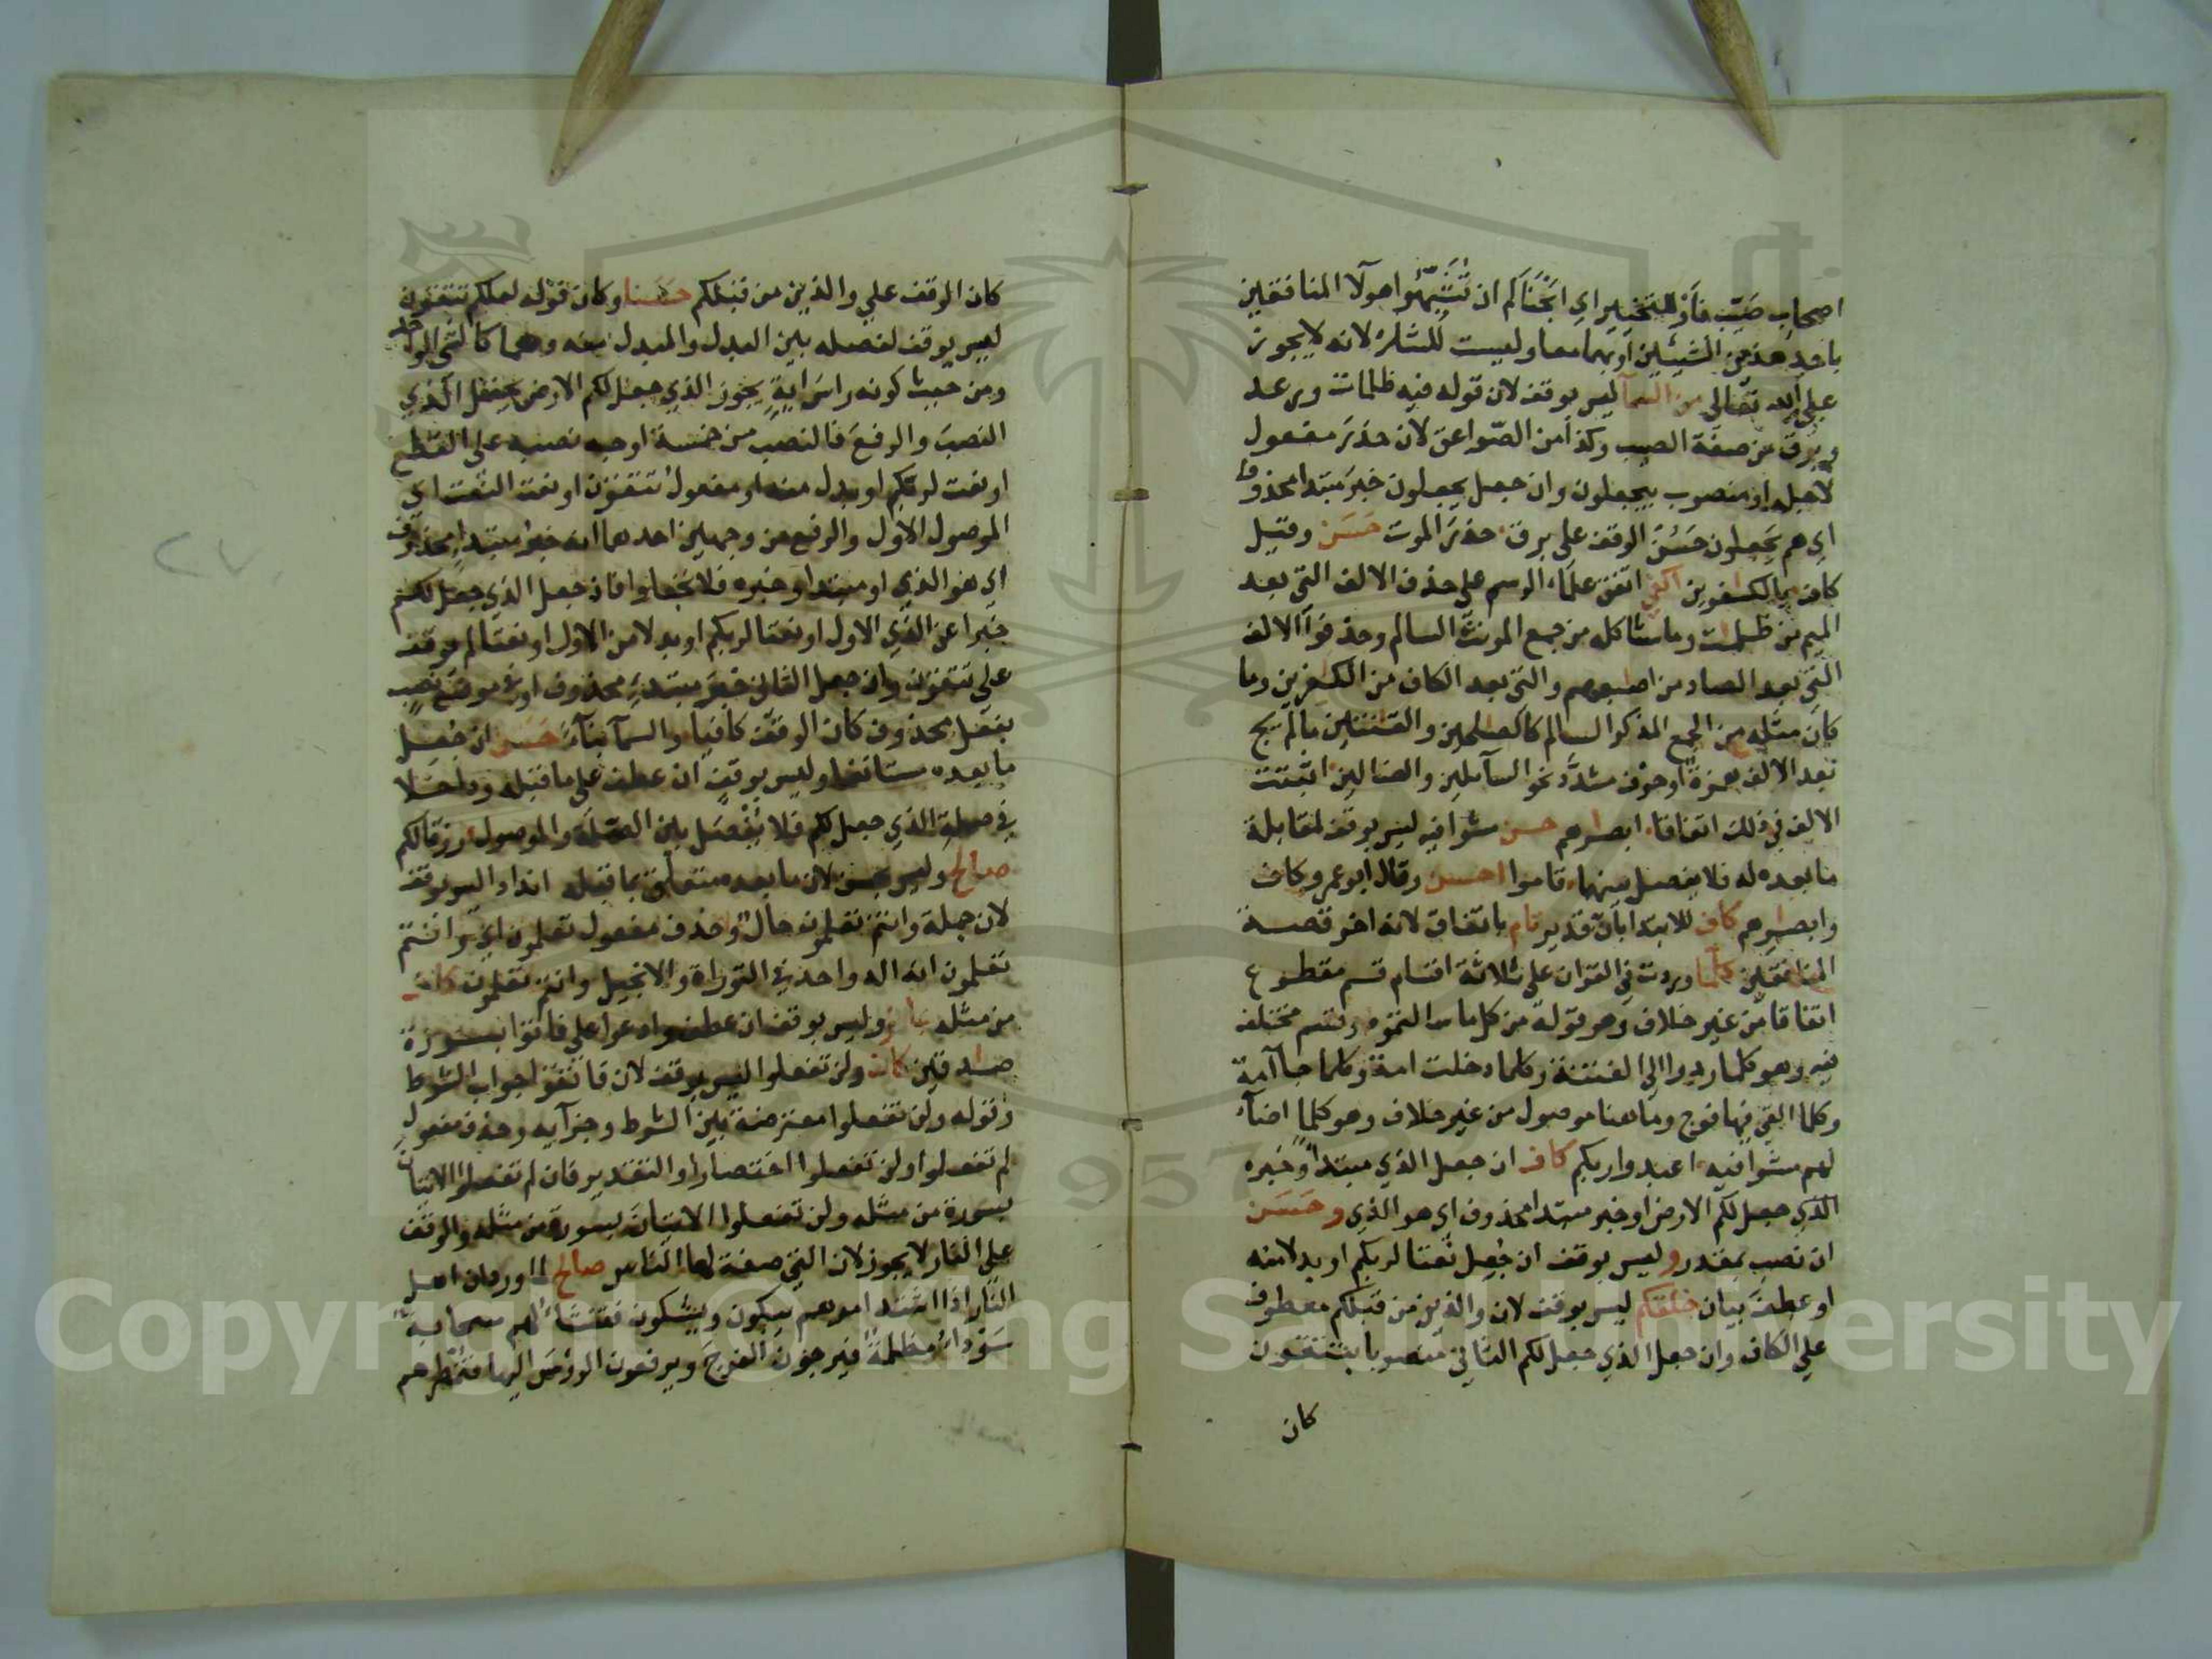 اصحاب صيب فأو للتخيير اي ابحناكم ان تشبهوا هولآ المنافقين
باحد هذين الشيئين أو بهما معا وليست للشك لانه لا يجوز
على الله تعالى من السمآ ليس بوقف لان قوله فيه ظلمات ورعد
وبرق من صفة الصيب وكذا من الصواعق لان حذر مفعول
لاجله او منصوب بيجعلون وان جعل يجعلون خبر مبتدا محذوف
اي هم يجعلون حسن الوقف على برق حذر الموت حسن وقيل
كاف بالكفرين اكفى اتفق علماء الرسم على حذف الالف التي بعد
الميم من ظلمت وما شاكله من جمع المونث السالم وحذفوا الالف
التي بعد الصاد من اصبعهم والتي بعد الكاف من الكفرين وما
كان مثله من الجمع المذكر السالم كالصلحين والقنتين ما لم يج
بعد الالف همزة او حرف مشدد نحو السآئلين والضالين اثبتت
الالف في ذلك اتفاقا ابصرهم حسن مشوا فيه ليس بوقف لمقابلة
ما بعده له فلا يفصل بينهما قاموا احسن وقال ابو عمرو كاف
وابصرهم كاف للابتدا بان قدير تام باتفاق لانه اخر قصة
المنافقين كلما وردت في القران على ثلاثة اقسام قسم مقطوع
اتفاقا من غير خلاف وهو قوله من كل ما سالتموه وقسم مختلف
فيه وهو كلما ردوا الى الفتنة وكلما دخلت امة وكلما جآ امة
وكلما القي فيها فوج وما هنا موصول من غير خلاف وهو كلما اضآء
لهم مشوا فيه اعبدوا ربكم كاف ان جعل الذي مبتدا وخبره
الذي جعل لكم الارض او خبر مبتدا محذوف اي هو الذي وحسن
ان نصب بمقدر وليس بوقف ان جعل نعتا لربكم او بدلا منه
او عطف بيان خلقكم ليس بوقف لان والذين من قبلكم معطوف
على الكاف وان جعل الذي جعل لكم الثاني منصوبا بتتقون
كان
كان الوقف على والذين من قبلكم حسنا وكان قوله لعلكم تتقون
ليس بوقف لفصله بين البدل والمبدل منه وهما كالشي الواحد
ومن حيث كونه راس اية يجوز الذي جعل لكم الارض يحتمل الذي
النصب والرفع فالنصب من خمسة اوجه نصبه على القطع
او نعت لربكم او بدل منه او مفعول تتقون او نعت النعت اي
الموصول الاول والرفع من وجهين احدهما انه خبر مبتدا محذوف
اي هو الذي او مبتدا وخبره فلا تجعلوا فان جعل الذي جعل لكم
خبرا عن الذي الاول او نعتا لربكم او بدلا من الاول او نعتا لم يوقف
على تتقون وان جعل الثاني خبر مبتدء محذوف او في موضع نصب
بفعل محذوف كان الوقف كافيا والسمآ بنآء حسن ان جعل
ما بعده مستانفا وليس بوقف ان عطف على ما قبله وداخلا
في صلة الذي جعل لكم فلا يفصل بين الصلة والموصول رزقا لكم
صالح وليس بحسن لان ما بعده متعلق بما قبله اندادا ليس بوقف
لان جملة وانتم تعلمون حال وحذف مفعول تعلمون اي وانتم
تعلمون انه اله واحد في التوراة والانجيل وانتم تعلمون كاف
من مثله جائز وليس بوقف ان عطف وادعوا على فاتوا بسورة
صدقين كاف ولن تفعلوا ليس بوقف لان فاتقوا جواب الشرط
وقوله ولن تفعلوا معترضة بين الشرط وجزآيه وحذف مفعول
لم تفعلوا ولن تفعلوا اختصارا والتقدير فان لم تفعلوا الاتيان
بسورة من مثله ولن تفعلوا الاتيان بسورة من مثله والوقف
على النار لا يجوز لان التي صفة لها الناس صالح لما ورد ان اهل
النار اذا اشتد امرهم يبكون ويشكون فتنشا لهم سحابة
سودا مظلمة فيرجون الفرج ويرفعون الرؤس اليها فتمطرهم